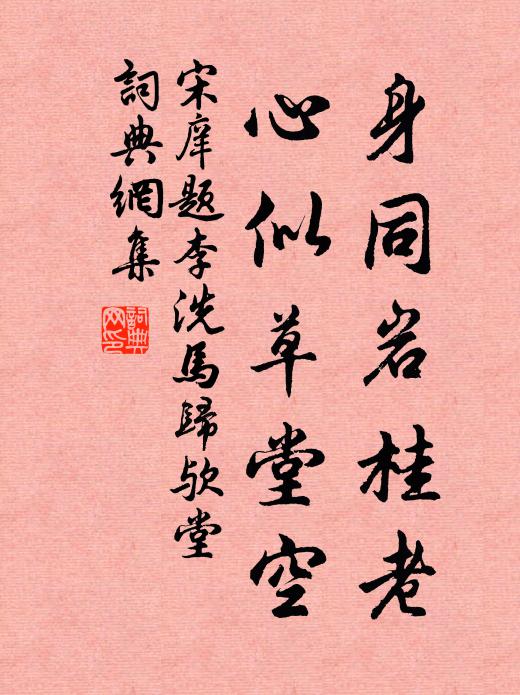 身同岩桂老
心似草堂空
宋庠题李洗馬歸欤堂
詞典網集
詞典
网印